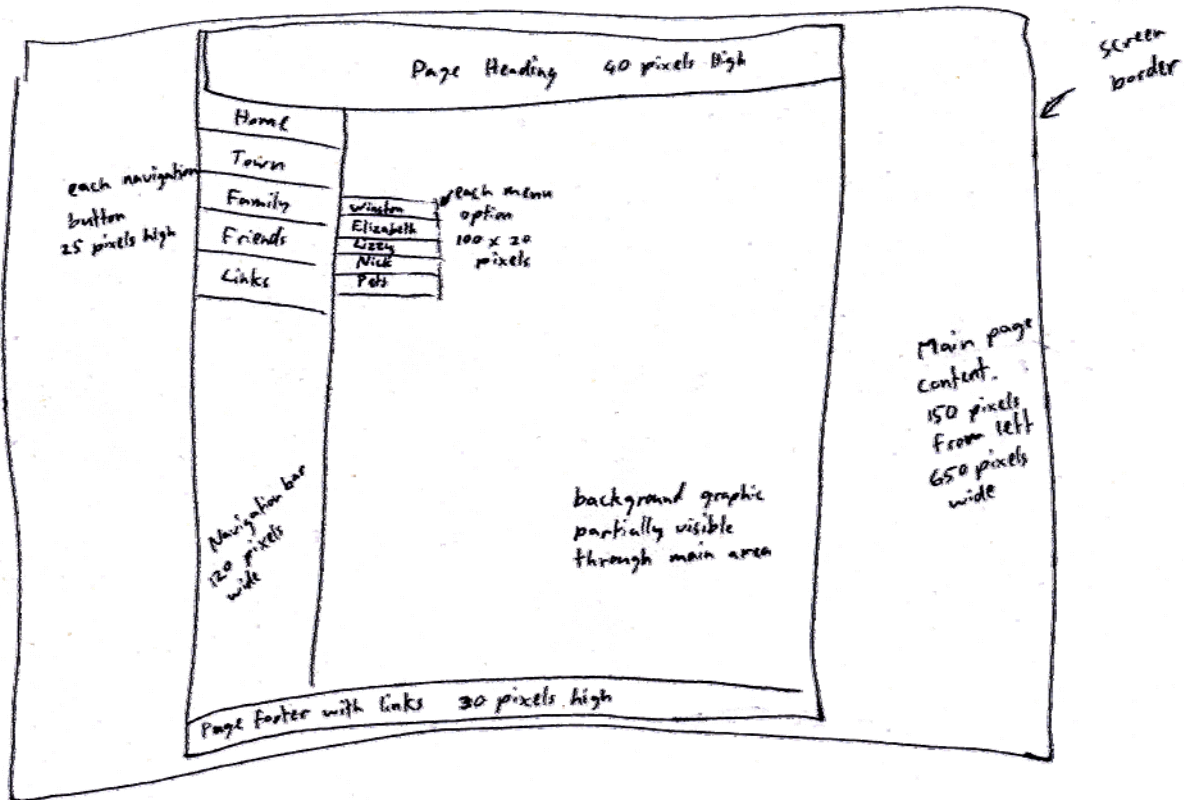 Page Heading 40 pixels High
screen
border
Home
Town
Family
Friends
Links
each navigation
button
25 pixels high
Winston
Elizabeth
Lizzy
Nick
Pets
each menu
option
100 x 20
pixels
Main page
content.
150 pixels
from left
650 pixels
wide
Navigation bar
120 pixels
wide
background graphic
partially visible
through main area
Page footer with links 30 pixels high